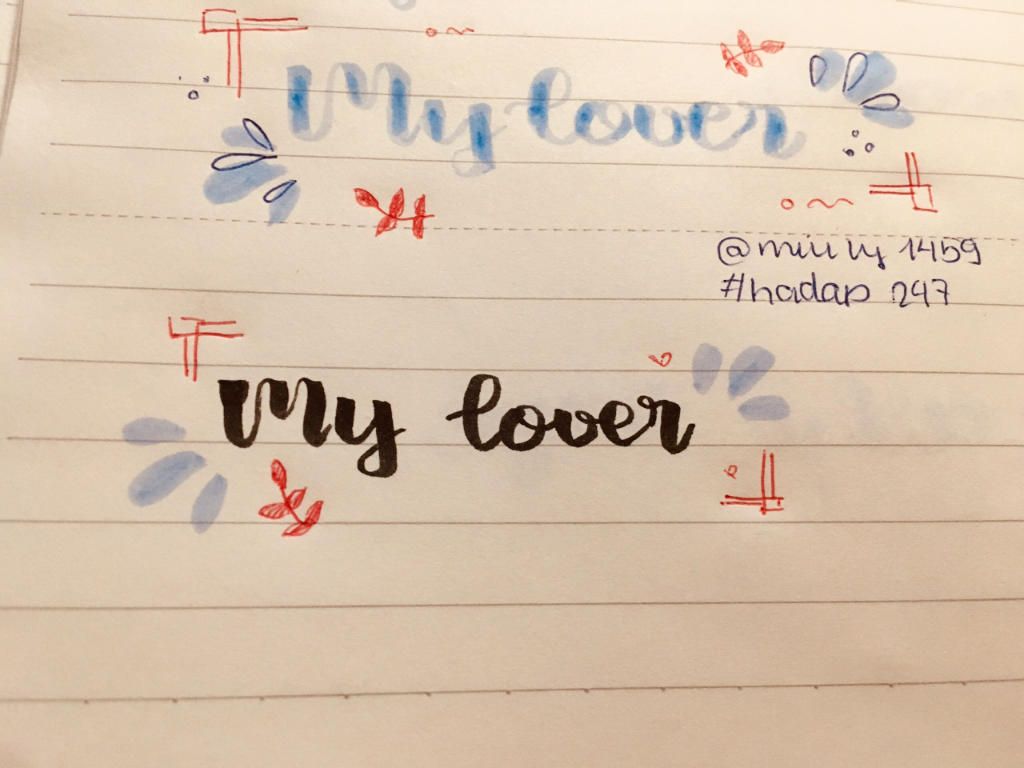 My lover
@miu ly 1459
#hadap 247
My lover